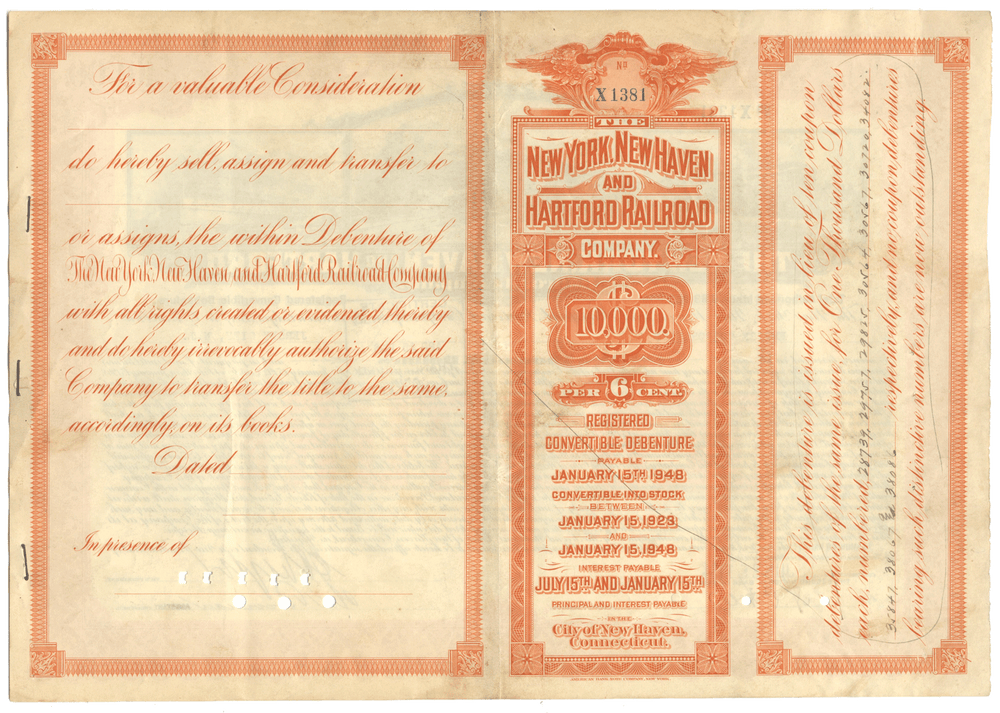 For a valuable Consideration
do hereby sell, assign and transfer to
or assigns, the within Debenture of
The New York, New Haven and Hartford Railroad Company
with all rights, created or evidenced thereby
and do hereby irrevocably authorize the said
Company to transfer the title to the same,
accordingly, on its books.
Dated,
In presence of
No
X1381
THE
NEW YORK, NEW HAVEN
AND
HARTFORD RAILROAD
COMPANY.
$
10,000.
PER 6 CENT.
REGISTERED
CONVERTIBLE DEBENTURE
PAYABLE
JANUARY 15TH 1948
CONVERTIBLE INTO STOCK
BETWEEN
JANUARY 15, 1923
AND
JANUARY 15, 1948
INTEREST PAYABLE
JULY 15TH AND JANUARY 15TH
PRINCIPAL AND INTEREST PAYABLE
IN THE
City of New Haven,
Connecticut.
This debenture is issued in lieu of ten coupon
debentures of the same issue, for One Thousand Dollars
each, numbered, 28739, 29757, 29825, 30564, 30567, 32720, 34082,
38067 & 38086 respectively, and no coupon debentures
bearing such distinctive numbers are now outstanding.